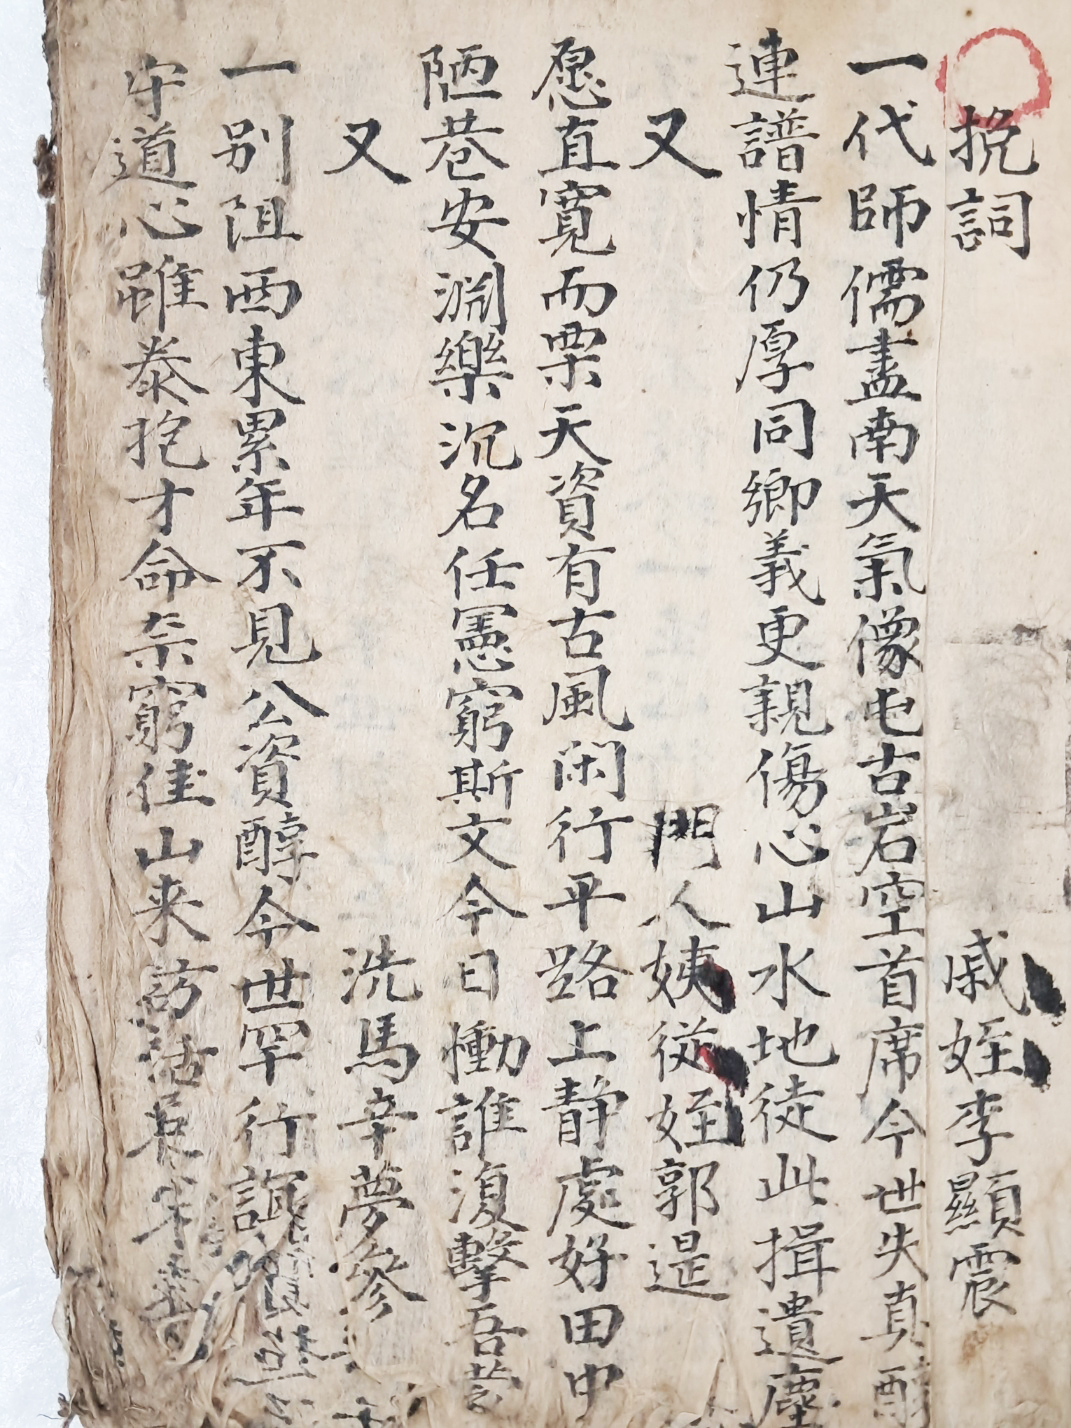 挽詞
戚姪李顯震
一代師儒盡南天氣像屯古岩空首席今世失真醇
連譜情仍厚同鄉義更親傷心山水地徒此揖遺塵
又
門人姨從姪郭是
愿直寬而栗天資有古風閑行平路上静處好田中
陋巷安淵樂沉名任憲窮斯文今日慟誰復擊吾蒙
又
洗馬辛夢參
一别阻西東累年不見公資醇今世罕行
守道心雖泰抱才命柰窮佳山来訪